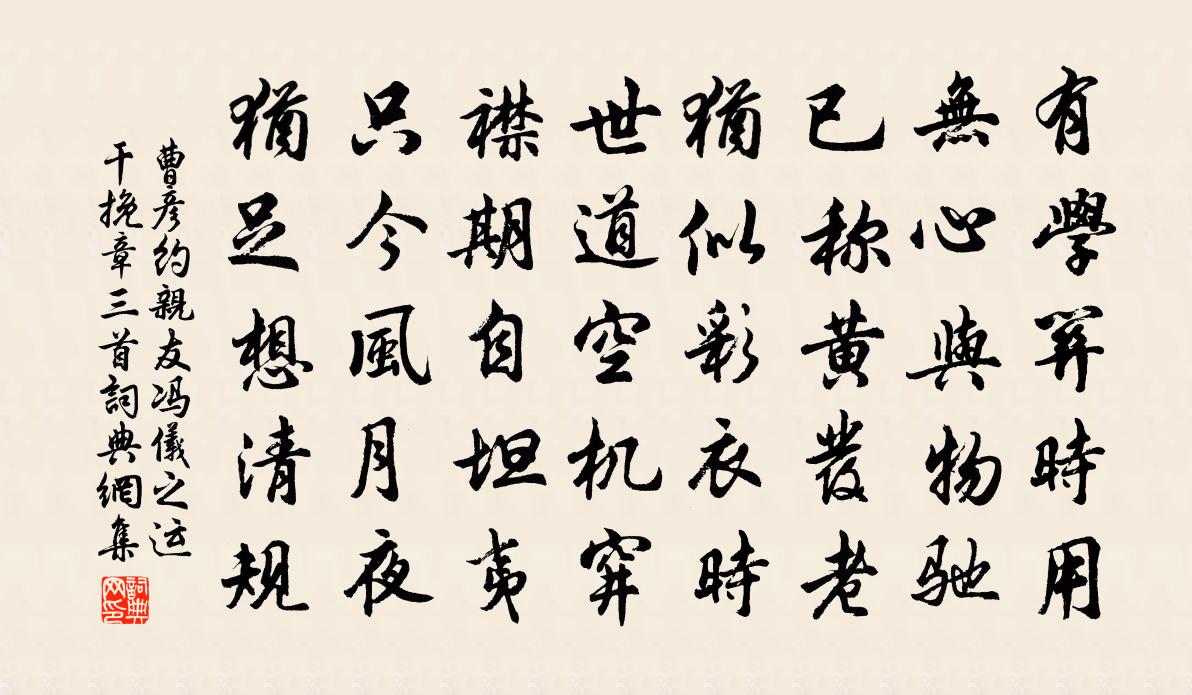 有學時用
無心與物馳
已称黃發老
猶似彩衣時
世道空机穽
襟期自坦夷
只今風月夜
猶足想清規
曹彥約親友冯儀之运
干挽章三首詞典網集
詞典網印